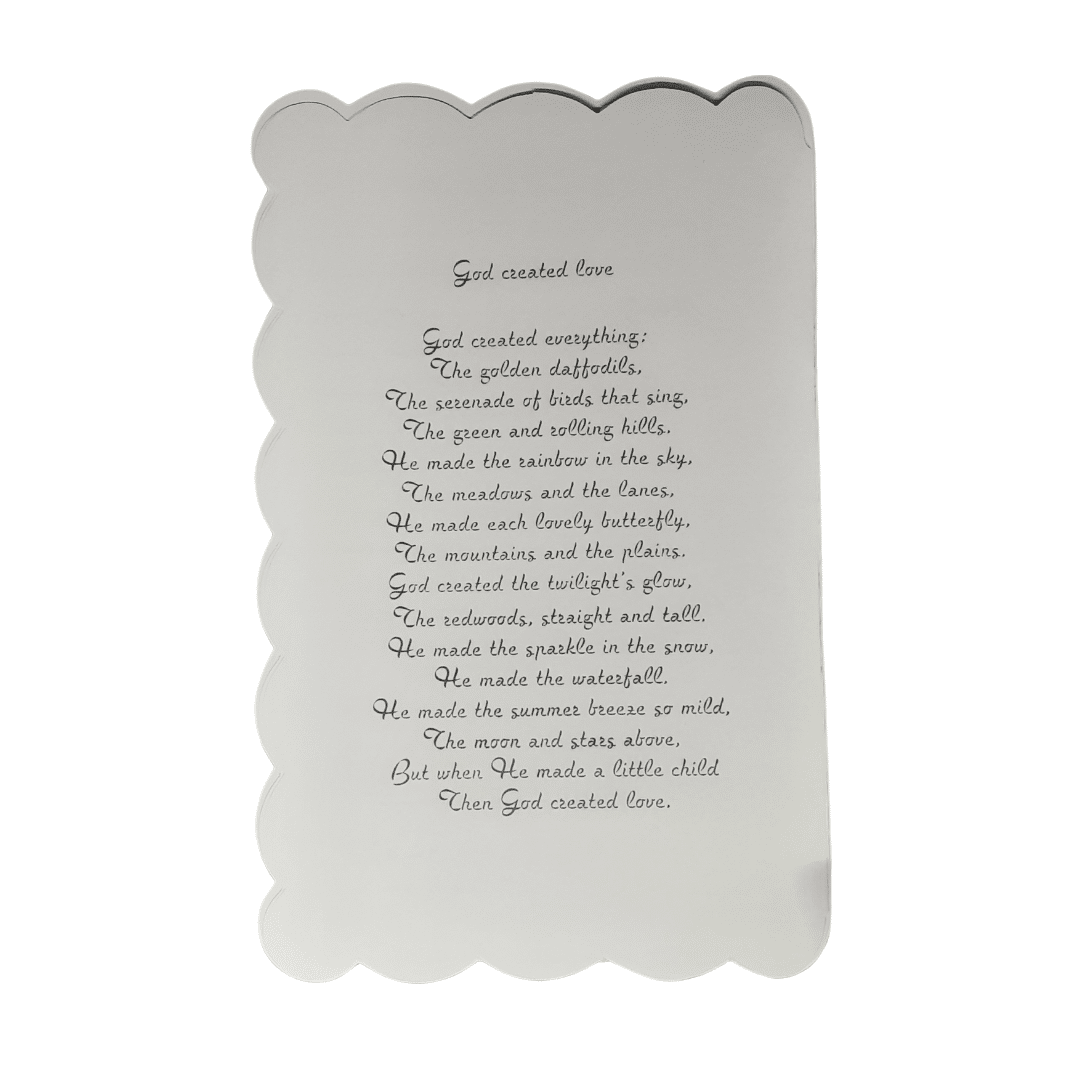 God created love
God created everything:
The golden daffodils,
The serenade of birds that sing,
The green and rolling hills.
He made the rainbow in the sky,
The meadows and the lanes,
He made each lovely butterfly,
The mountains and the plains.
God created the twilight's glow,
The redwoods, straight and tall.
He made the sparkle in the snow,
He made the waterfall.
He made the summer breeze so mild,
The moon and stars above,
But when He made a little child
Then God created love.